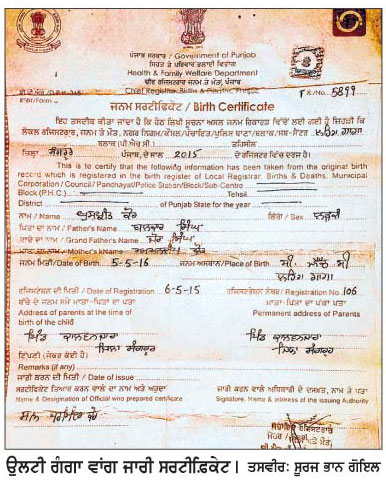 ਪੰਜਾਬ ਸਰਕਾਰ / Government of Punjab
ਸਿਹਤ ਤੇ ਪਰਿਵਾਰ ਭਲਾਈ ਵਿਭਾਗ
Health & Family Welfare Department
ਚੀਫ ਰਜਿਸਟਰਾਰ ਜਨਮ ਤੇ ਮੌਤ, ਪੰਜਾਬ
Chief Registrar Births & Deaths, Punjab
ਫਾਰਮ/Form
ਨੰ./No. 5899
ਜਨਮ ਸਰਟੀਫਿਕੇਟ / Birth Certificate
ਇਹ ਤਸਦੀਕ ਕੀਤਾ ਜਾਂਦਾ ਹੈ ਕਿ ਹੇਠ ਲਿਖੀ ਸੂਚਨਾ ਅਸਲ ਜਨਮ ਰਿਕਾਰਡ ਵਿੱਚੋਂ ਲਈ ਗਈ ਹੈ ਜਿਹੜੀ ਕਿ
ਲੋਕਲ ਰਜਿਸਟਰਾਰ, ਜਨਮ ਤੇ ਮੌਤ, ਨਗਰ ਨਿਗਮ/ਕੌਂਸਲ/ਪੰਚਾਇਤ/ਪੁਲਿਸ ਥਾਣਾ/ਬਲਾਕ/ਸਬ-ਸੈਂਟਰ
ਬਲਾਕ (ਪੀ.ਐਚ.ਸੀ.) ਤਹਿਸੀਲ
ਜਿਲ੍ਹਾ ਸੰਗਰੂਰ ਪੰਜਾਬ, ਦੇ ਸਾਲ 2015 ਦੇ ਰਜਿਸਟਰ ਵਿੱਚ ਦਰਜ ਹੈ।
This is to certify that the following information has been taken from the original birth
record which is registered in the birth register of Local Registrar, Births & Deaths, Municipal
Corporation / Council / Panchayat/Police Station/Block/Sub-Centre
Block (P.H.C.) Tehsil
District of Punjab State for the year
ਨਾਮ / Name ਕੌਰ ਲਿੰਗ / Sex ਲੜਕੀ
ਪਿਤਾ ਦਾ ਨਾਮ / Father's Name ਸਿੰਘ
ਦਾਦੇ ਦਾ ਨਾਮ / Grand Father's Name ਸਿੰਘ
ਮਾਤਾ ਦਾ ਨਾਮ / Mother's Name ਕੌਰ
ਜਨਮ ਮਿਤੀ/Date of Birth 5-5-16 ਜਨਮ ਅਸਥਾਨ/Place of Birth
ਰਜਿਸਟਰੇਸ਼ਨ ਦੀ ਮਿਤੀ / Date of Registration 6-5-15 ਰਜਿਸਟਰੇਸ਼ਨ ਨੰਬਰ / Registration No 106
ਬੱਚੇ ਦੇ ਜਨਮ ਸਮੇਂ ਮਾਤਾ-ਪਿਤਾ ਦਾ ਪਤਾ ਮਾਤਾ-ਪਿਤਾ ਦਾ ਪੱਕਾ ਪਤਾ
Address of parents at the time of Permanent address of Parents
birth of the child
ਪਿੰਡ ਪਿੰਡ
ਜਿਲਾ ਸੰਗਰੂਰ ਜਿਲਾ ਸੰਗਰੂਰ
ਟਿੱਪਣੀ (ਜੇਕਰ ਕੋਈ ਹੈ)
Remarks (if any)
ਜਾਰੀ ਕਰਨ ਦੀ ਮਿਤੀ / Date of issue
ਸਰਟੀਫਿਕੇਟ ਤਿਆਰ ਕਰਨ ਵਾਲੇ ਦਾ ਨਾਮ ਅਤੇ ਅਹੁਦਾ ਜਾਰੀ ਕਰਨ ਵਾਲੇ ਅਧਿਕਾਰੀ ਦੇ ਦਸਖਤ, ਨਾਮ ਤੇ ਪਤਾ
Name & Designation of Official who prepared certificate Signature, Name & address of the issuing Authority
ਉਲਟੀ ਗੰਗਾ ਵਾਂਗ ਜਾਰੀ ਸਰਟੀਫ਼ਿਕੇਟ। ਤਸਵੀਰ: ਸੂਰਜ ਭਾਨ ਗੋਇਲ